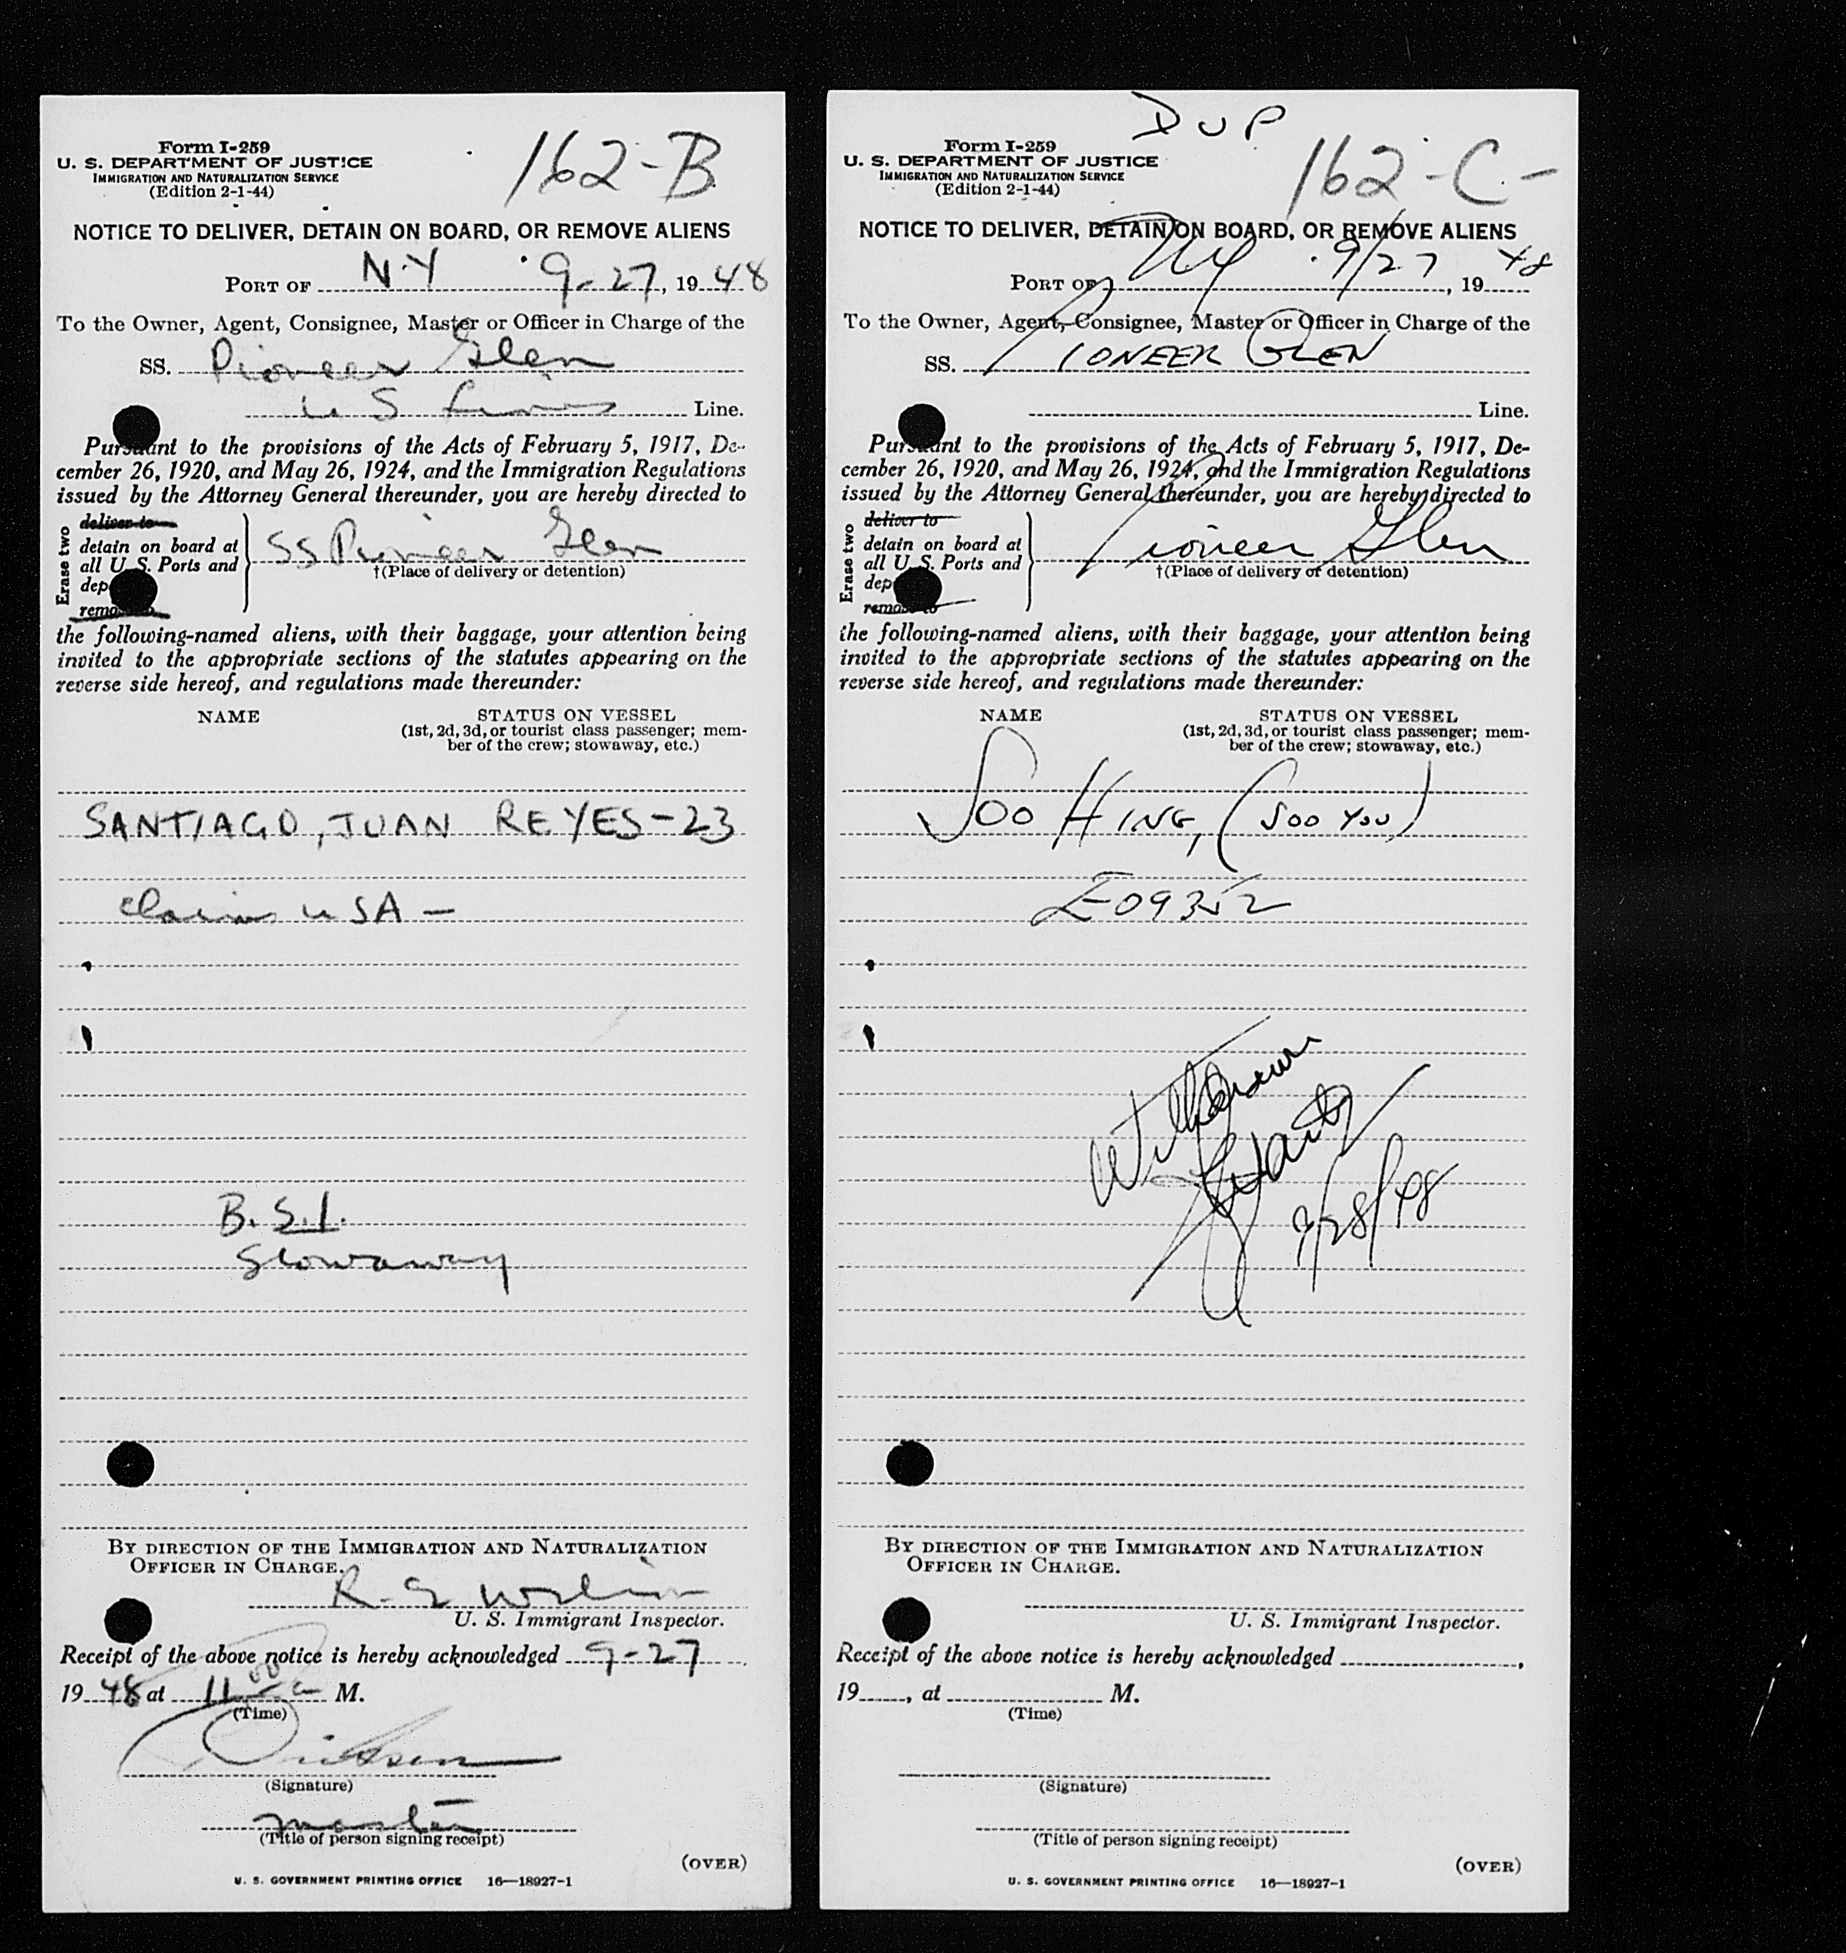 Form I-259
U. S. DEPARTMENT OF JUSTICE
IMMIGRATION AND NATURALIZATION SERVICE
(Edition 2-1-44)
162-B
NOTICE TO DELIVER, DETAIN ON BOARD, OR REMOVE ALIENS
PORT OF N.Y 9-27, 1948
To the Owner, Agent, Consignee, Master or Officer in Charge of the
SS. Pioneer Glen
U S Lines Line.
Pursuant to the provisions of the Acts of February 5, 1917, De-
cember 26, 1920, and May 26, 1924, and the Immigration Regulations
issued by the Attorney General thereunder, you are hereby directed to
Erase two
deliver to
detain on board at
all U. S. Ports and
dep
remove to
SS Pioneer Glen
†(Place of delivery or detention)
the following-named aliens, with their baggage, your attention being
invited to the appropriate sections of the statutes appearing on the
reverse side hereof, and regulations made thereunder:
NAME STATUS ON VESSEL
(1st, 2d, 3d, or tourist class passenger; mem-
ber of the crew; stowaway, etc.)
SANTIAGO, JUAN REYES-23
Claims USA -
B.S.I.
Stowaway
BY DIRECTION OF THE IMMIGRATION AND NATURALIZATION
OFFICER IN CHARGE.
R.
U. S. Immigrant Inspector.
Receipt of the above notice is hereby acknowledged 9-27
1948 at 11 00 a M.
(Time)
(Signature)
master
(Title of person signing receipt)
(OVER)
U. S. GOVERNMENT PRINTING OFFICE 16—18927-1
DUP
Form I-259
U. S. DEPARTMENT OF JUSTICE
IMMIGRATION AND NATURALIZATION SERVICE
(Edition 2-1-44)
162-C-
NOTICE TO DELIVER, DETAIN ON BOARD, OR REMOVE ALIENS
PORT OF NY 9/27, 19 48
To the Owner, Agent, Consignee, Master or Officer in Charge of the
SS. PIONEER GLEN
Line.
Pursuant to the provisions of the Acts of February 5, 1917, De-
cember 26, 1920, and May 26, 1924, and the Immigration Regulations
issued by the Attorney General thereunder, you are hereby directed to
Erase two
deliver to
detain on board at
all U. S. Ports and
dep
remove to
Pioneer Glen
†(Place of delivery or detention)
the following-named aliens, with their baggage, your attention being
invited to the appropriate sections of the statutes appearing on the
reverse side hereof, and regulations made thereunder:
NAME STATUS ON VESSEL
(1st, 2d, 3d, or tourist class passenger; mem-
ber of the crew; stowaway, etc.)
SOO HING, (SOO YOU)
E09352
Withdrawn
9/28/48
BY DIRECTION OF THE IMMIGRATION AND NATURALIZATION
OFFICER IN CHARGE.
U. S. Immigrant Inspector.
Receipt of the above notice is hereby acknowledged ,
19 , at M.
(Time)
(Signature)
(Title of person signing receipt)
(OVER)
U. S. GOVERNMENT PRINTING OFFICE 16—18927-1